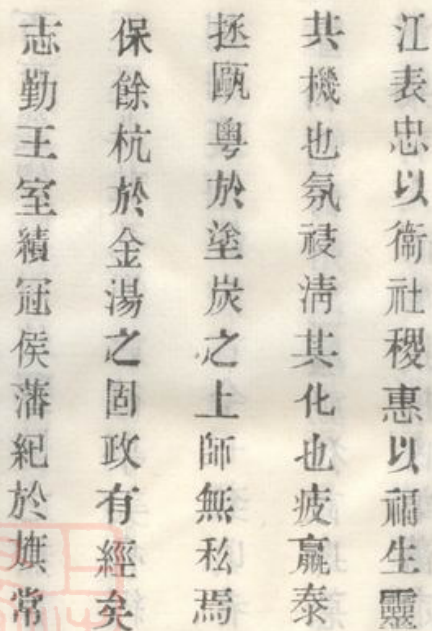 江表忠以衞社稷惠以福生靈
共機也氛祲淸其化也疲羸泰
拯甌粤於塗炭之上師無私焉
保餘杭於金湯之固政有經矣
志勤王室績冠侯藩紀於旗常